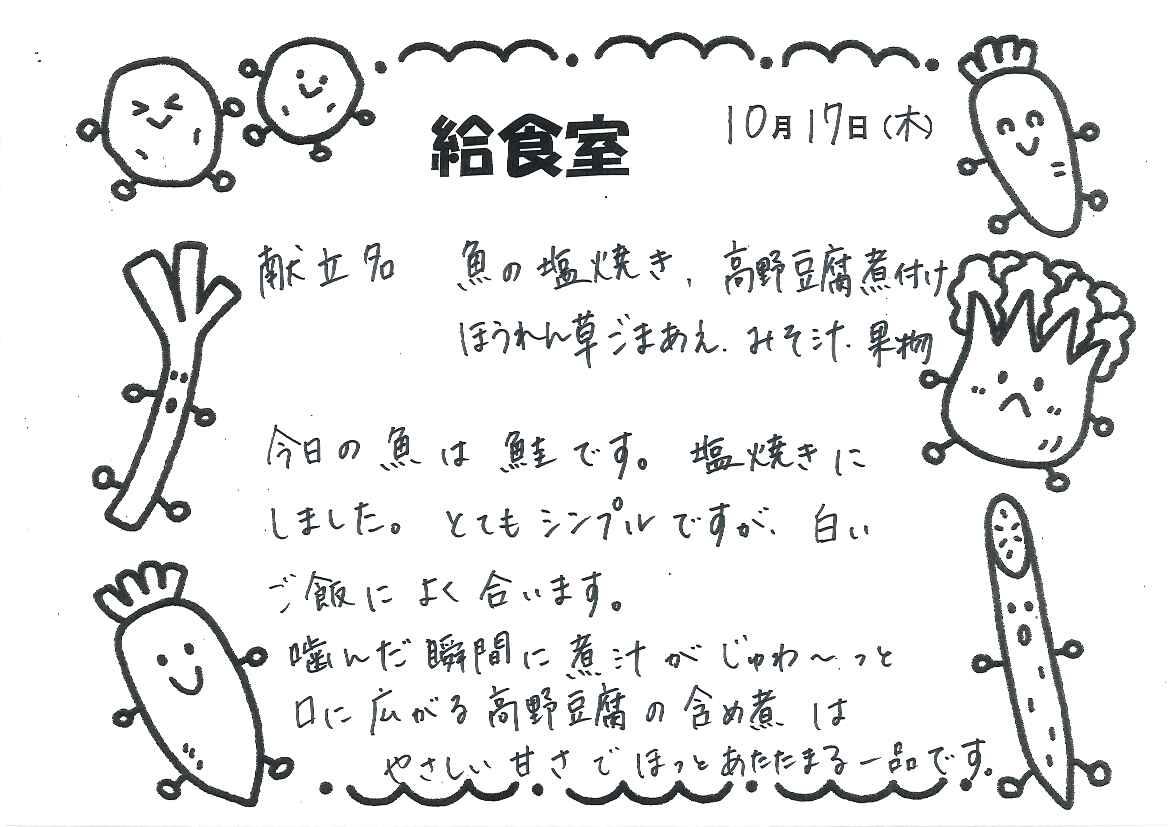 給食室
10月17日(木)
献立名 魚の塩焼き、高野豆腐煮付け
ほうれん草ごまあえ、みそ汁、果物
今日の魚は鮭です。塩焼きに
しました。とてもシンプルですが、白い
ご飯によく合います。
噛んだ瞬間に煮汁がじゅわ~っと
口に広がる高野豆腐の含め煮は
やさしい甘さでほっとあたたまる一品です。